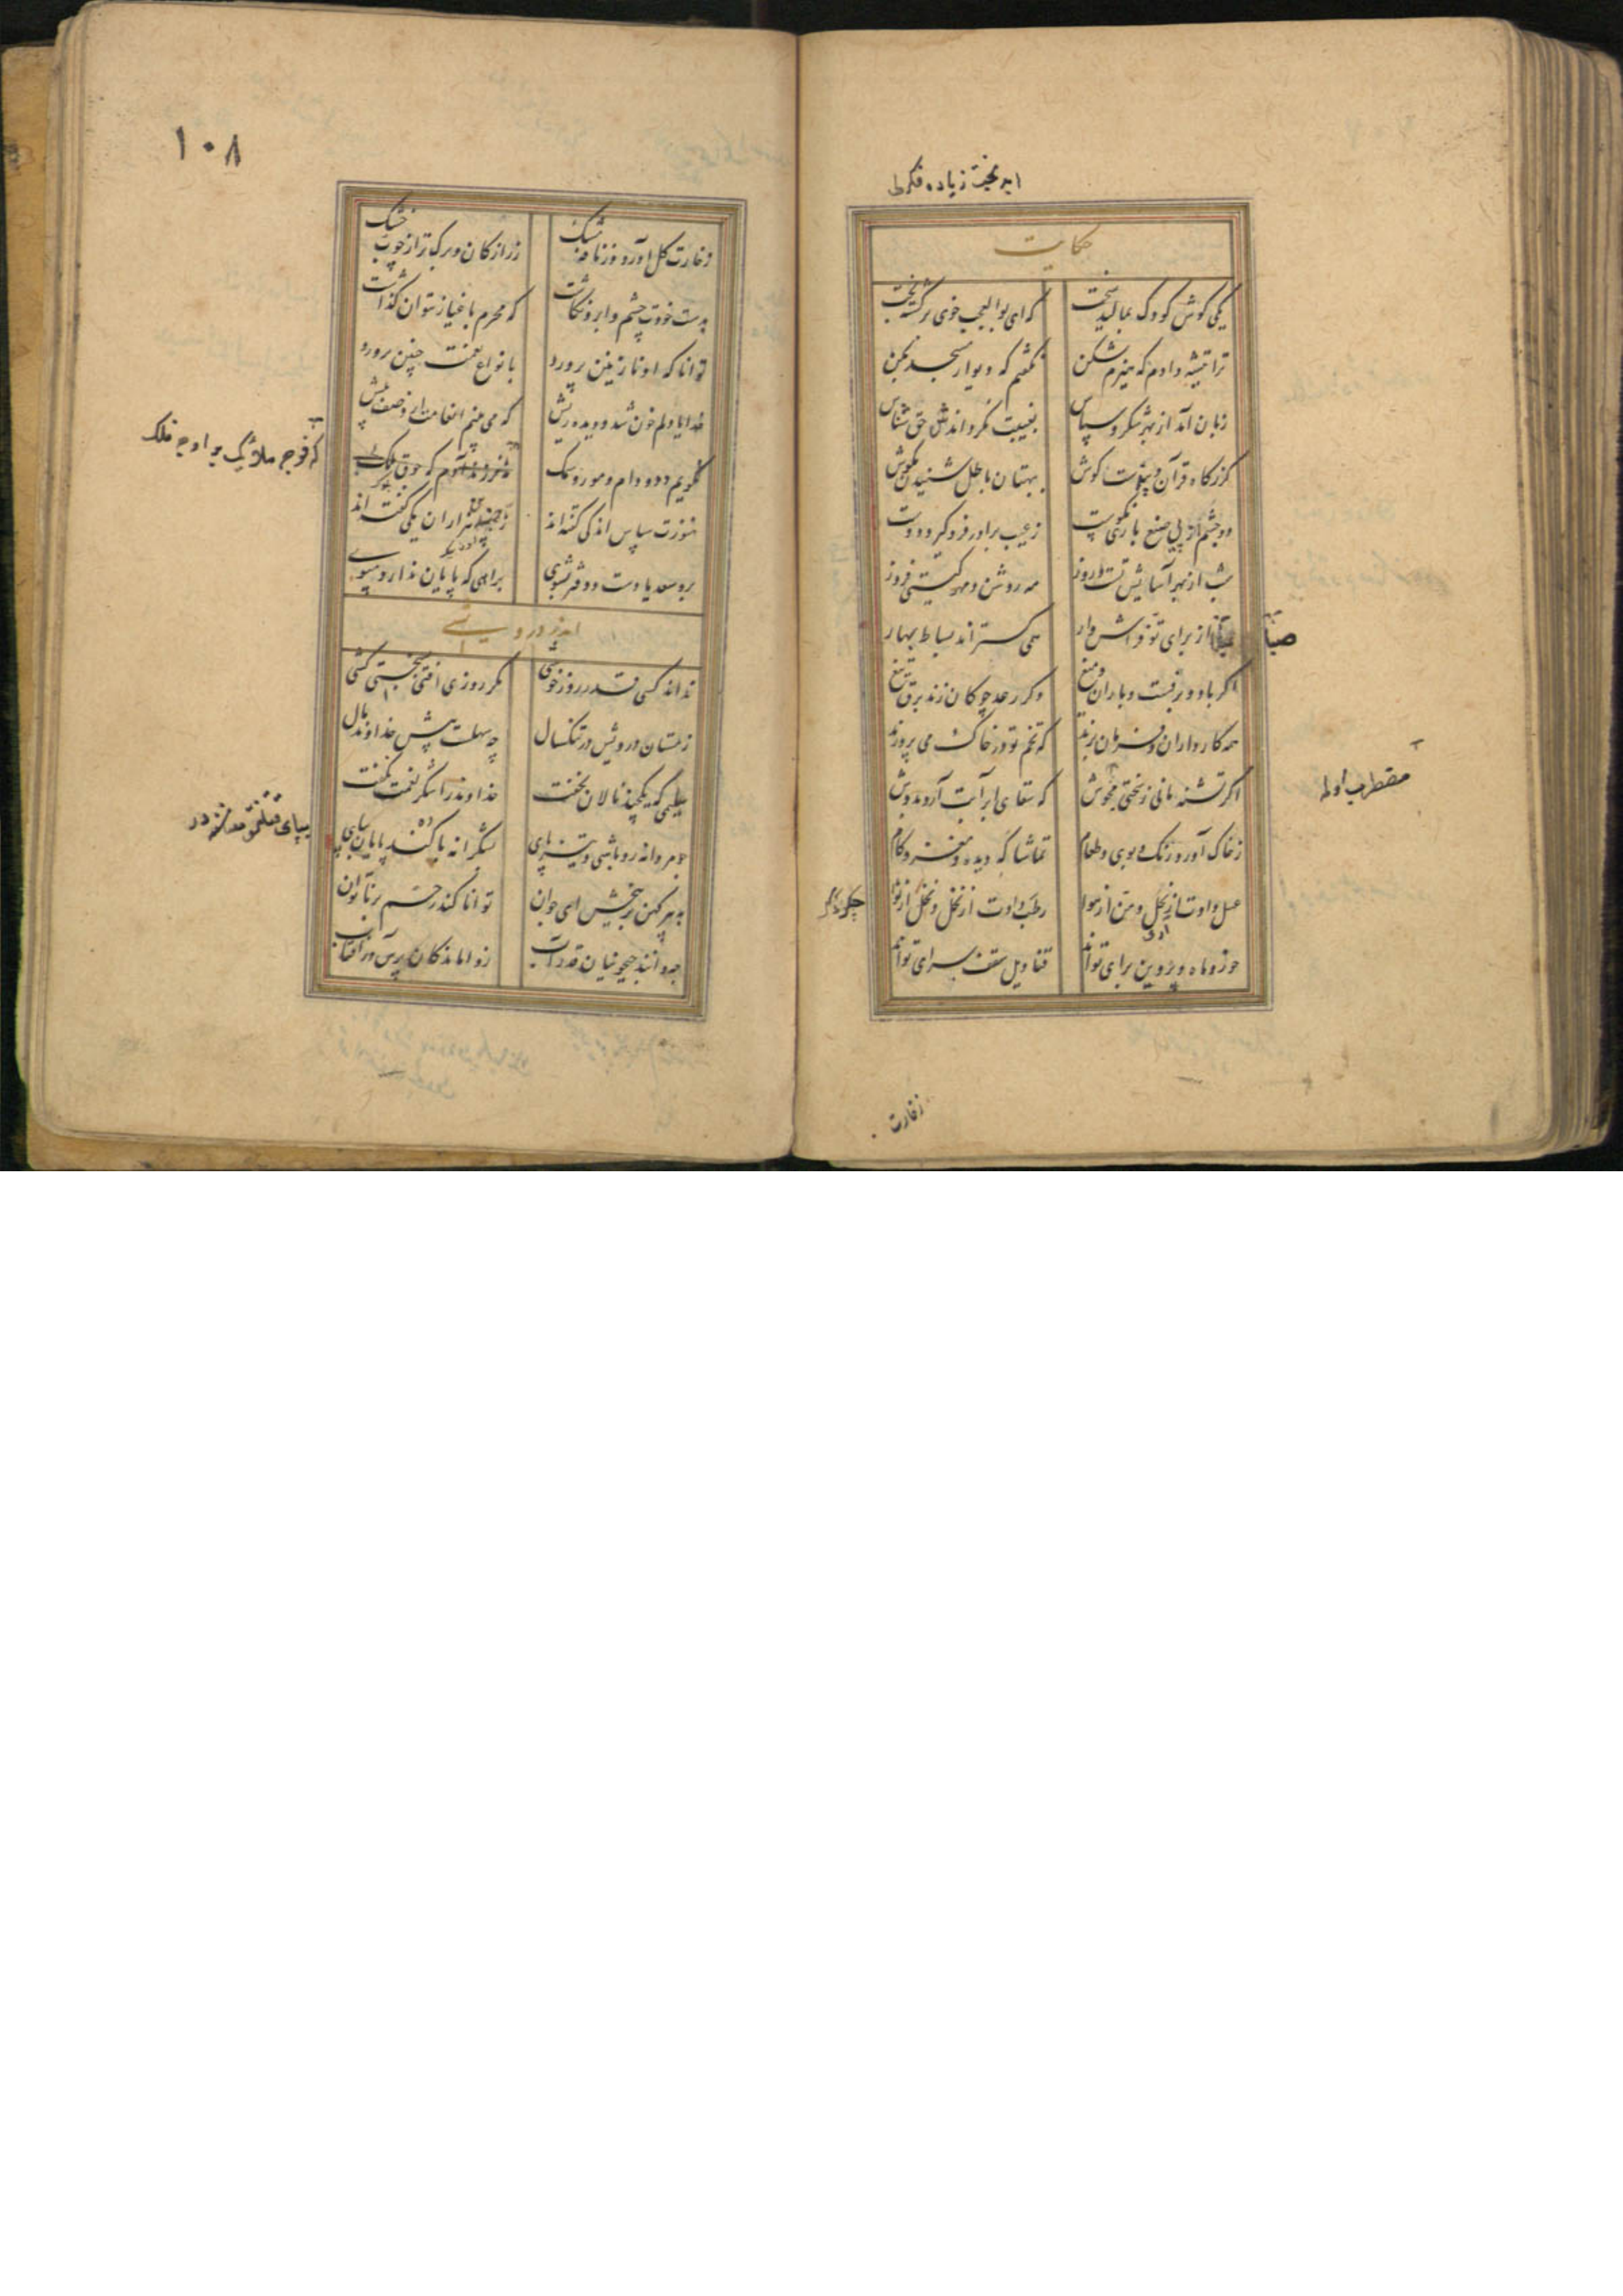 حکایت
یکی گوش کودک بمالید سخت که ای بوالعجب خوی برگشته بخت
ترا تیشه دادم که هیزم شکن نگفتم که دیوار مسجد بکن
زبان آمد از بهر شکر و سپاس بغیبت نگرداندش حق شناس
گذرگاه قرآن و پندست گوش ببهتان باطل شنیدن مکوش
دو چشم از پی صنع باری نکوست ز عیب برادر فروگیر و دوست
شب از بهر آسایش تست و روز مه روشن و مهر گیتی فروز
صبا از برای تو فراش وار همی گستراند بساط بهار
اگر باد و برفست و باران و میغ وگر رعد چوگان زند برق تیغ
همه کارداران فرمان برند که تخم تو در خاک می پرورند
اگر تشنه مانی ز سختی مجوش که سقای ابر آبت آرد بدوش
ز خاک آورد رنگ و بوی و طعام تماشاگه دیده و مغز و کام
عسل دادت از نحل و من از هوا رطب دادت از نخل و نخل از نوا
خور و ماه و پروین برای تواند قنادیل سقف سرای تواند
صبا
زخارت
۱۰۸
زخارت گل آورد و زر نافه مشک زر از کان و برگ تر از چوب خشک
بدست خودت چشم و ابرو نگاشت که محرم باغیار نتوان گذاشت
توانا که او نازنین پرورد بانواع نعمت چنین پرورد
خدایا دلم خون شد و دیده ریش که می بینم انعامت از وصف بیش
نگویم دد و دام و مور و سمک
که فوج ملائک بر اوج فلک
هنوزت سپاس اندکی گفته اند ز چندین هزاران یکی گفته اند
برو سعدیا دست و دفتر بشوی براهی که پایان ندارد مپوی
نداند کسی قدر روز خوشی مگر روزی افتد بسختی کشی
زمستان درویش در تنگسال چه سهلست پیش خداوند مال
سلیمی که یکچند نالان نخفت خداوند را شکر نعمت نگفت
چو مردانه رو باشی و تیز پای بشکرانه با کندپایان بپای
به پیر کهن بر ببخش ای جوان توانا کند رحم بر ناتوان
چه دانند جیحونیان قدر آب ز واماندگان پرس در آفتاب